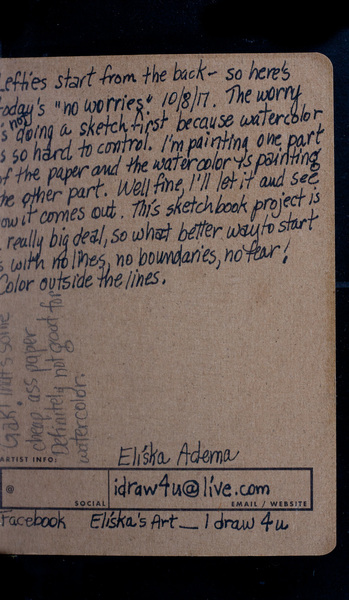 Lefties start from the back- so here's
today's "no worries". 10/8/17. The worry
is not doing a sketch first because watercolor
is so hard to control. I'm painting one part
of the paper and the watercolor is painting
the other part. Well fine, I'll let it and see
how it comes out. This sketchbook project is
a really big deal, so what better way to start
is with no lines, no boundaries, no fear!
Color outside the lines.
Gak! that's some
cheap ass paper
Definitely not great for
watercolor.
ARTIST INFO:
Eliška Adema
@
SOCIAL
idraw4u@live.com
EMAIL / WEBSITE
Facebook Eliška's Art - I draw 4u